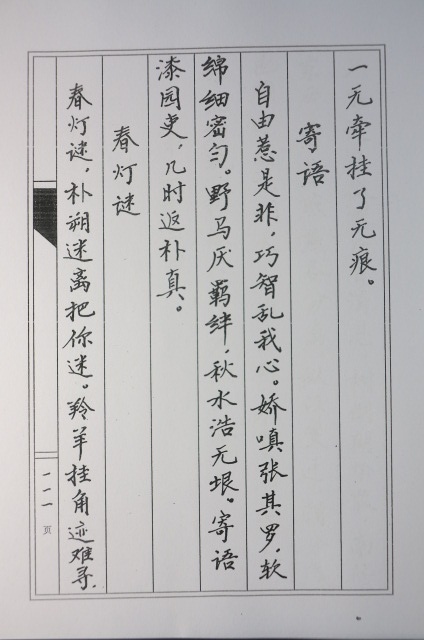 一无牵挂了无痕。
寄语
自由惹是非，巧智乱我心。娇嗔张其罗，软
绵细密匀。野马厌羁绊，秋水浩无垠。寄语
漆园吏，几时返朴真。
春灯谜
春灯谜，朴朔迷离把你迷。羚羊挂角迹难寻，
一一一页